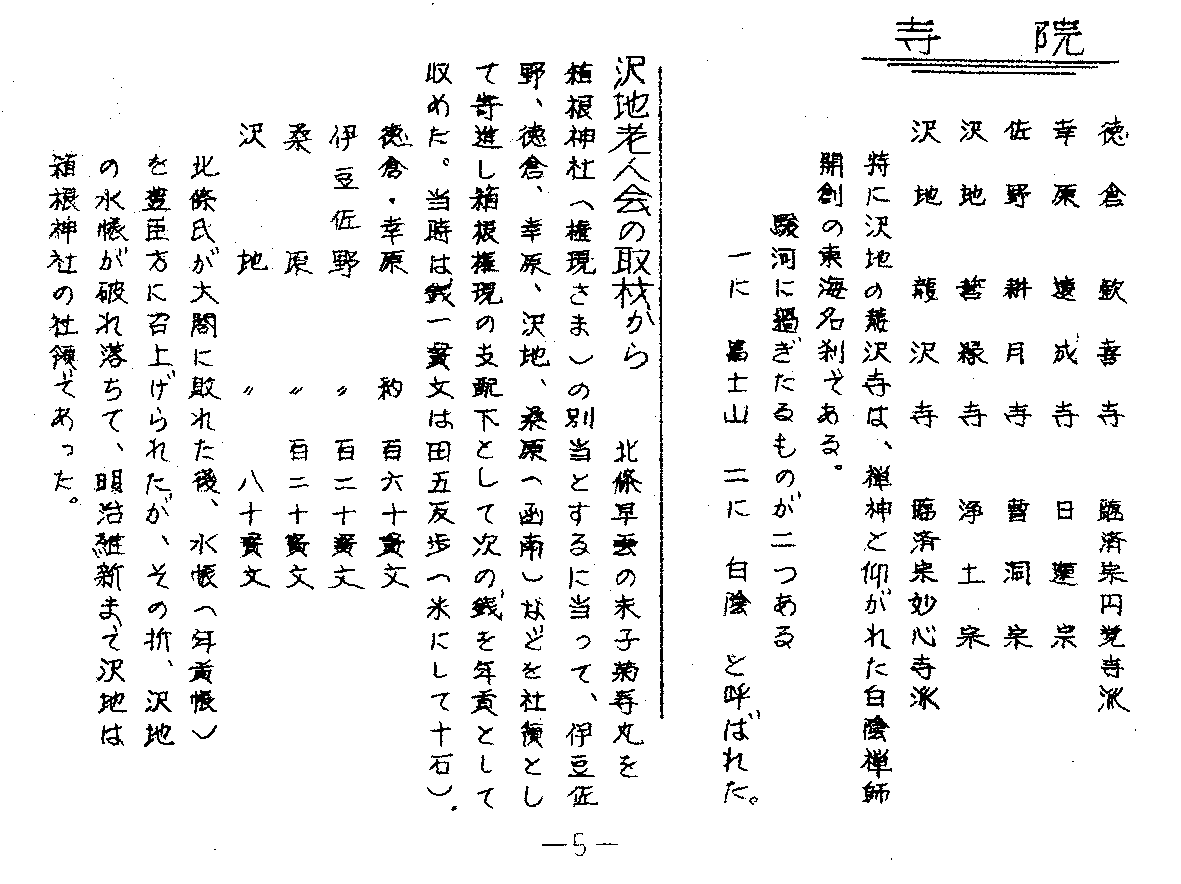 寺院
徳倉 欽喜寺 臨済宗円覚寺派
幸原 遠成寺 日蓮宗
佐野 耕月寺 曹洞宗
沢地 蓮緑寺 浄土宗
沢地 龍沢寺 臨済宗妙心寺派
特に沢地の龍沢寺は、禅神と仰がれた白陰禅師
開創の東海名刹である。
駿河に過ぎたるものが二つある
一に 富士山 二に 白陰 と呼ばれた。
沢地老人会の取材から 北條早雲の末子菊寿丸を
箱根神社(権現さま)の別当とするに当って、伊豆佐
野、徳倉、幸原、沢地、桑原(函南)などを社領とし
て寄進し箱根権現の支配下として次の銭を年貢として
収めた。当時は銭一貫文は田五反歩(米にして十石).
徳倉・幸原 約 百六十貫文
伊豆佐野 〃 百二十貫文
桑原 〃 百二十貫文
沢地 〃 八十貫文
北條氏が大閤に敗れた後、水帳(年貢帳)
を豊臣方に召上げられたが、その折、沢地
の水帳が破れ落ちて、明治維新まで沢地は
箱根神社の社領であった。
—5—